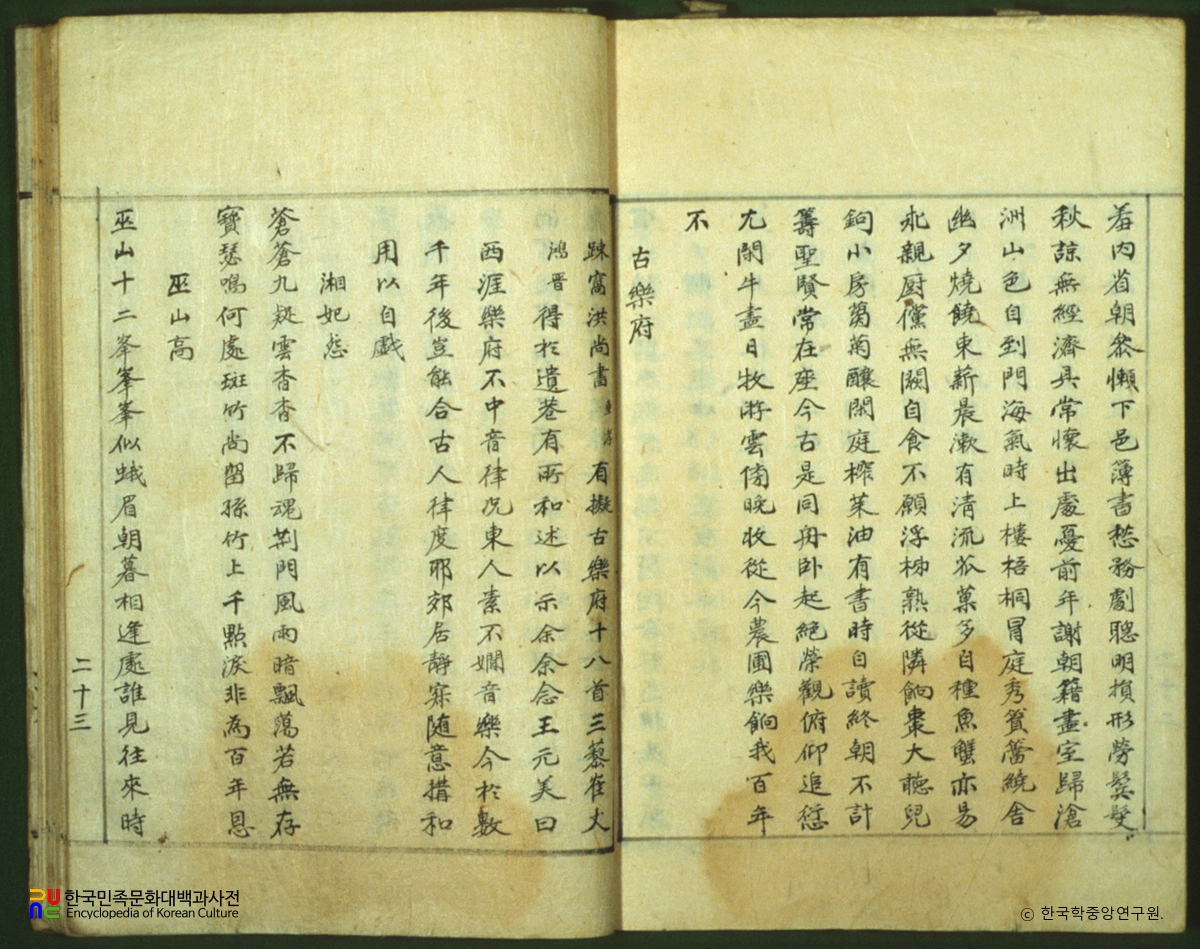 羞內省朝叅懶下邑簿書愁務劇聰明損形勞鬂髮
秋諒無經濟具常懷出處憂前年謝朝籍盡室歸滄
洲山色自到門海氣時上樓梧桐冒庭秀篔簹繞舍
幽夕燒饒東薪晨漱有清流苽菓多自種魚蟹亦易
求親厨儻無闕自食不願浮柹熟從隣餉棗大聽兒
鉤小房蒭菊釀閑庭榨茱油有書時自讀終朝不計
籌聖賢常在座今古是同舟卧起絶榮觀俯仰追愆
尤閑牛晝日牧游雲傍晚收從今農圃樂餉我百年
不
古樂府
踈窩洪尚書有擬古樂府十八首三藜崔丈
鴻晋得於遺巷有所和述以示余余念王元美曰
西涯樂府不中音律况東人素不嫺音樂今於數
千年後豈能合古人律度耶郊居靜寂隨意措和
用以自戲
湘妃怨
蒼蒼九疑雲杳杳不歸魂荊門風雨暗飄蕩若無存
寶瑟鳴何處斑竹尚留孫竹上千點淚非為百年恩
巫山高
巫山十二峯峯峯似蛾眉朝暮相逢處誰見往來時
二十三
한국민족문화대백과사전
Encyclopedia of Korean Culture
© 한국학중앙연구원.